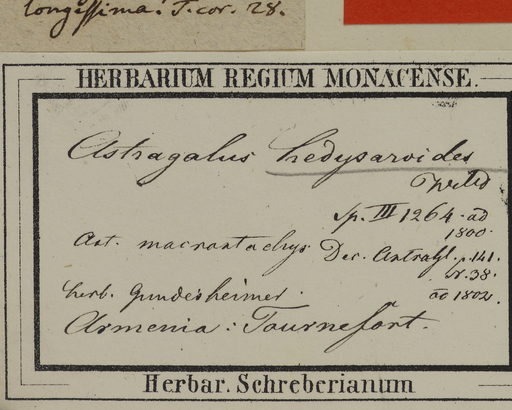 longissima. T. cor. 28.
HERBARIUM REGIUM MONACENSE.
Astragalus hedysaroides
Willd
sp. III 1264. ad
1800.
Ast. macrostachys. Dec. Astragl. p. 141.
nr. 38.
herb. Gundesheimer. ad 1802.
Armenia: Tournefort.
Herbar. Schreberianum